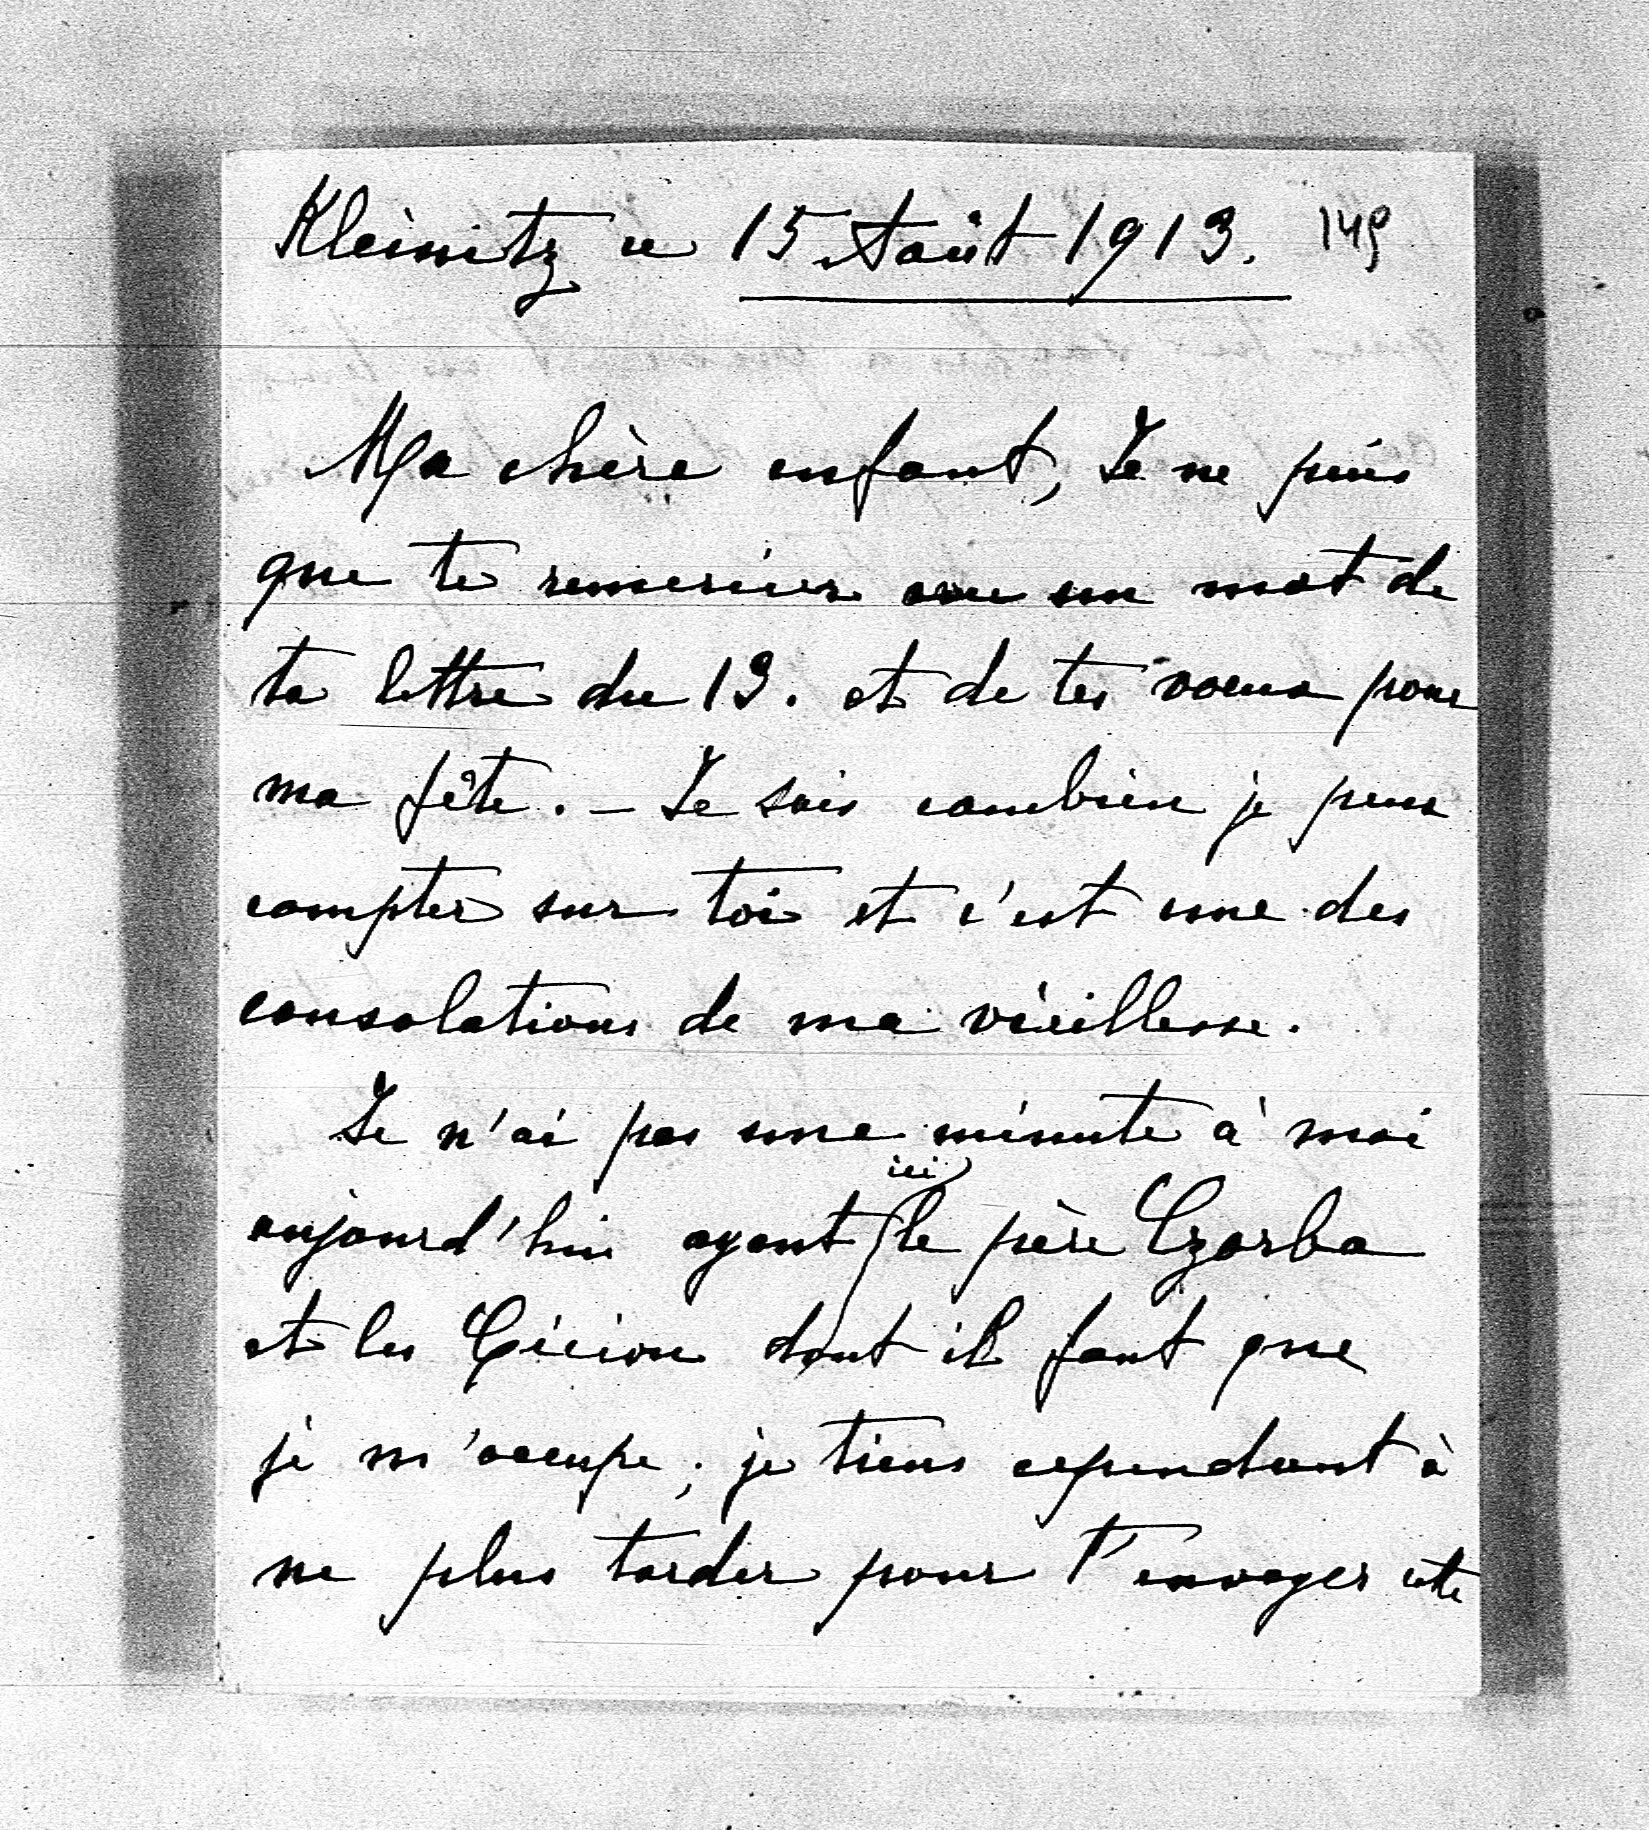 Kleinitz ce 15 Août 1913. 149
Ma chère enfant, Je ne puis
que te remercier avec un mot de
ta lettre du 13. et de tes vœux pour
ma fête. - Je sais combien je peux
compter sur toi et c'est une des
consolations de ma vieillesse.
Je n'ai pas une minute à moi
aujourd'hui ayant ici le père Czarba
et les dont il faut que
je m'occupe; je tiens cependant à
ne plus tarder pour t'envoyer cette